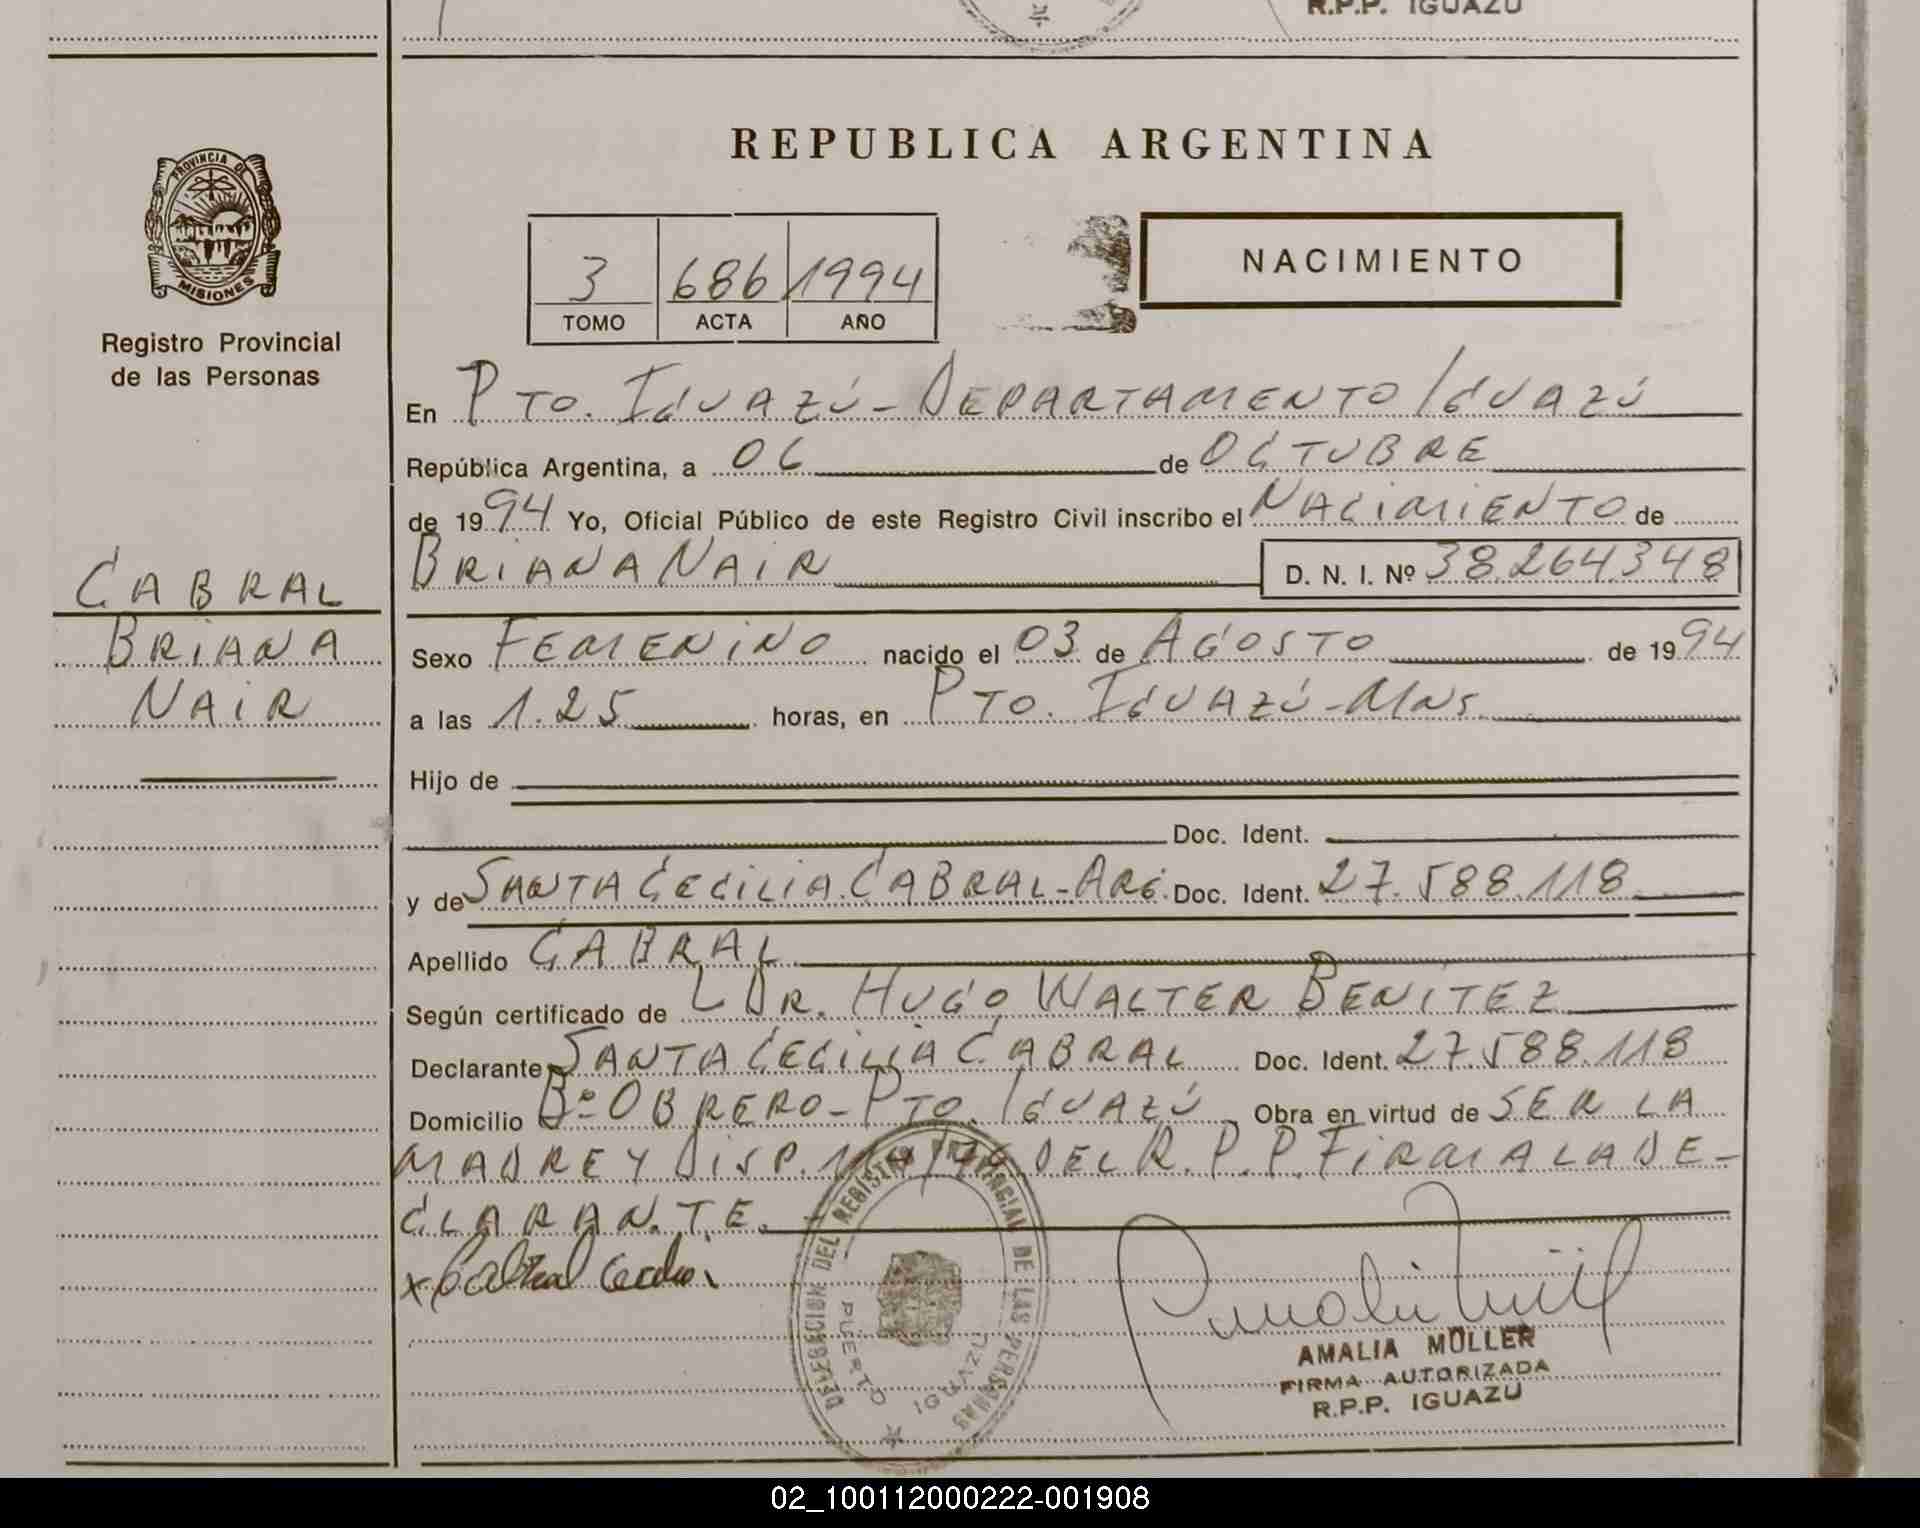 R.P.P. IGUAZU
REPUBLICA ARGENTINA
PROVINCIA DE
MISIONES
Registro Provincial
de las Personas
3 686 1994
TOMO ACTA AÑO
NACIMIENTO
En PTO. IGUAZÚ - DEPARTAMENTO IGUAZÚ
República Argentina, a 06 de OCTUBRE
de 1994 Yo, Oficial Público de este Registro Civil inscribo el NACIMIENTO de
BRIANA NAIR D. N. I. Nº 38.264.348
CABRAL
BRIANA
NAIR
Sexo FEMENINO nacido el 03 de AGOSTO de 1994
a las 1.25 horas, en PTO. IGUAZÚ - MNS.
Hijo de
Doc. Ident.
y de SANTA CECILIA CABRAL - ARG. Doc. Ident. 27.588.118
Apellido CABRAL
Según certificado de L DR. HUGO WALTER BENITEZ
Declarante SANTA CECILIA CABRAL Doc. Ident. 27.588.118
Domicilio Bº OBRERO - PTO. IGUAZÚ Obra en virtud de SER LA
MADRE Y DISP. DEL R. P. P. FIRMA LA DE-
CLARANTE.
x Cabral Cecilia
DELEGACION DEL REGISTRO PROVINCIAL DE LAS PERSONAS
PUERTO IGUAZU
AMALIA MÜLLER
FIRMA AUTORIZADA
R.P.P. IGUAZU
02_100112000222-001908